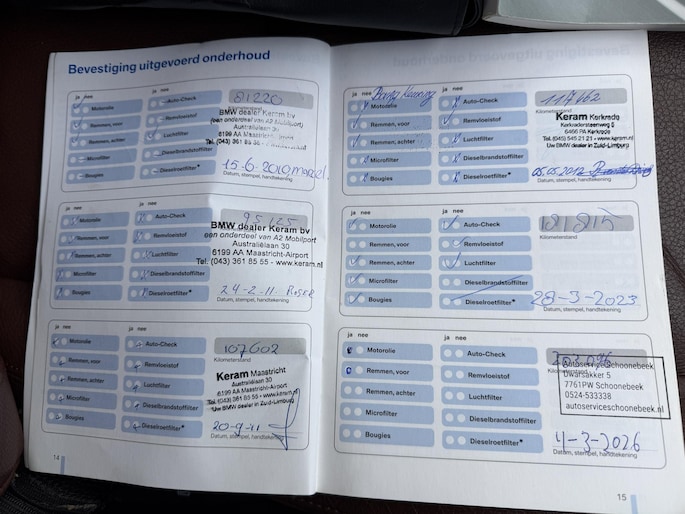 Bevestiging uitgevoerd onderhoud
ja nee
ja nee
Motorolie
Auto-Check
81220
Kilometerstand
Remmen, voor
Remvloeistof
BMW dealer Keram bv
(een onderdeel van A2 Mobilport)
Australiëlaan 30
6199 AA Maastricht-Airport
Tel. (043) 361 85 55
Remmen, achter
Luchtfilter
Microfilter
Dieselbrandstoffilter
Bougies
Dieselroetfilter*
15-6-2010
Datum, stempel, handtekening
ja nee
ja nee
Motorolie
Auto-Check
95125
Remmen, voor
Remvloeistof
BMW dealer Keram bv
een onderdeel van A2 Mobilport
Australiëlaan 30
6199 AA Maastricht-Airport
Tel. (043) 361 85 55 - www.keram.nl
Remmen, achter
Luchtfilter
Microfilter
Dieselbrandstoffilter
Bougies
Dieselroetfilter*
24-2-11
Datum, stempel, handtekening
ja nee
ja nee
Motorolie
Auto-Check
107602
Kilometerstand
Remmen, voor
Remvloeistof
Keram Maastricht
Australiëlaan 30
6199 AA Maastricht-Airport
Tel. (043) 361 85 55 - www.keram.nl
Uw BMW dealer in Zuid-Limburg
Remmen, achter
Luchtfilter
Microfilter
Dieselbrandstoffilter
Bougies
Dieselroetfilter*
20-9-11
Datum, stempel, handtekening
14
ja nee
ja nee
Motorolie
Auto-Check
117662
Kilometerstand
Remmen, voor
Remvloeistof
Keram Kerkrade
Kerkraderstaenweg 5
6466 PA Kerkrade
Tel. (045) 545 21 21 - www.keram.nl
Uw BMW dealer in Zuid-Limburg
Remmen, achter
Luchtfilter
Microfilter
Dieselbrandstoffilter
Bougies
Dieselroetfilter*
05.05.2012
Datum, stempel, handtekening
ja nee
ja nee
Motorolie
Auto-Check
181815
Kilometerstand
Remmen, voor
Remvloeistof
Remmen, achter
Luchtfilter
Microfilter
Dieselbrandstoffilter
Bougies
Dieselroetfilter*
28-3-2023
Datum, stempel, handtekening
ja nee
ja nee
Motorolie
Auto-Check
Remmen, voor
Remvloeistof
Autoservice Schoonebeek
Dwarsakker 5
7761PW Schoonebeek
0524-533338
autoserviceschoonebeek.nl
Remmen, achter
Luchtfilter
Microfilter
Dieselbrandstoffilter
Bougies
Dieselroetfilter*
4-3-2026
Datum, stempel, handtekening
15